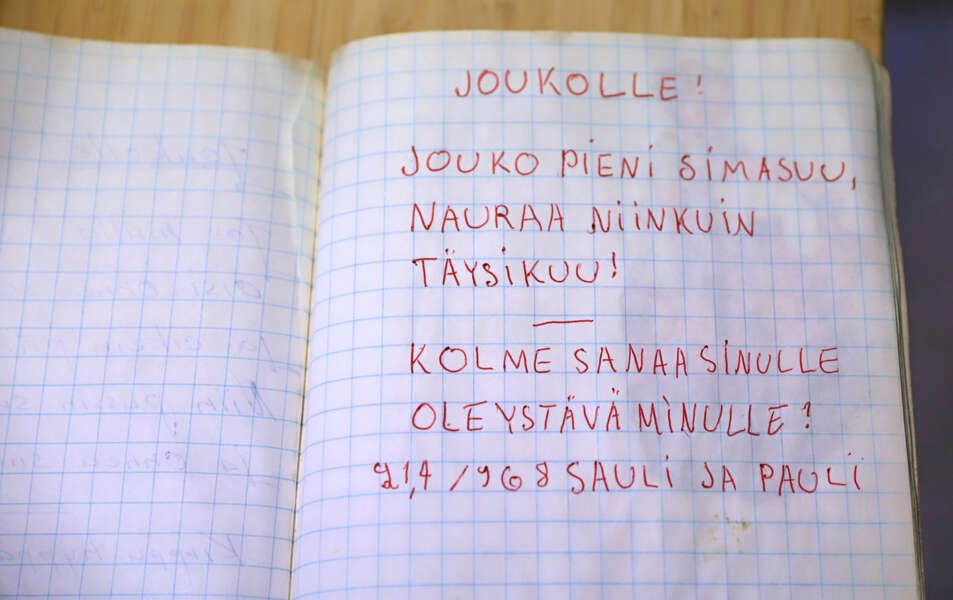 JOUKOLLE!
JOUKO PIENI SIMASUU,
NAURAA NIINKUIN
TÄYSIKUU!
KOLME SANAA SINULLE
OLE YSTÄVÄ MINULLE!
21,4 /968 SAULI JA PAULI